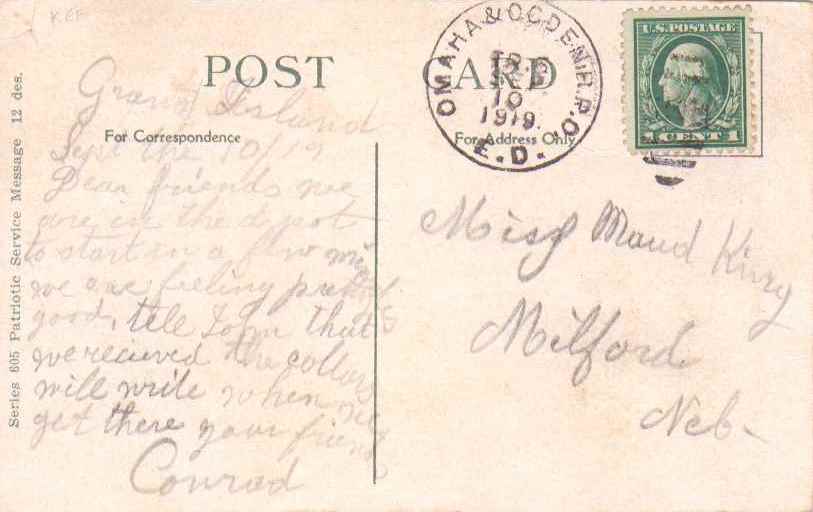 KEF
POST CARD
For Correspondence
For Address Only
Series 605 Patriotic Service Message 12 des.
OMAHA & OGDEN R.P.O.
10
1919.
E.D.
U.S. POSTAGE
1 CENT 1
Grand Island
Sept the 10 / 19
Dear friends we
are in the depot
to start in a few
we are feeling pretty
good, tell that
we recieved the collars
will write when we
get there your friend
Conrad
Miss Maud King
Milford
Neb-